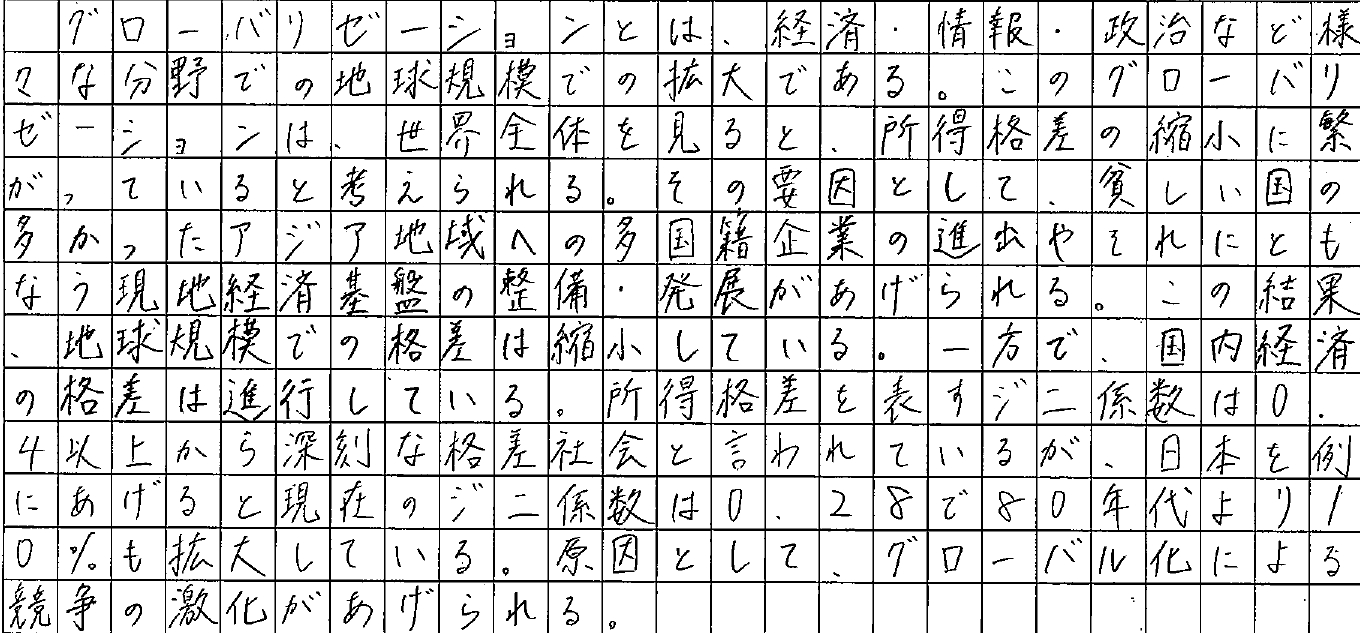 グローバリゼーションとは、経済・情報・政治など様
々な分野での地球規模での拡大である。このグローバリ
ゼーションは、世界全体を見ると、所得格差の縮小に繋
がっていると考えられる。その要因として、貧しい国の
多かったアジア地域への多国籍企業の進出やそれにとも
なう現地経済基盤の整備・発展があげられる。この結果
、地球規模での格差は縮小している。一方で、国内経済
の格差は進行している。所得格差を表すジニ係数は0.
4以上から深刻な格差社会と言われているが、日本を例
にあげると現在のジニ係数は0.28で80年代より1
0%も拡大している。原因として、グローバル化による
競争の激化があげられる。